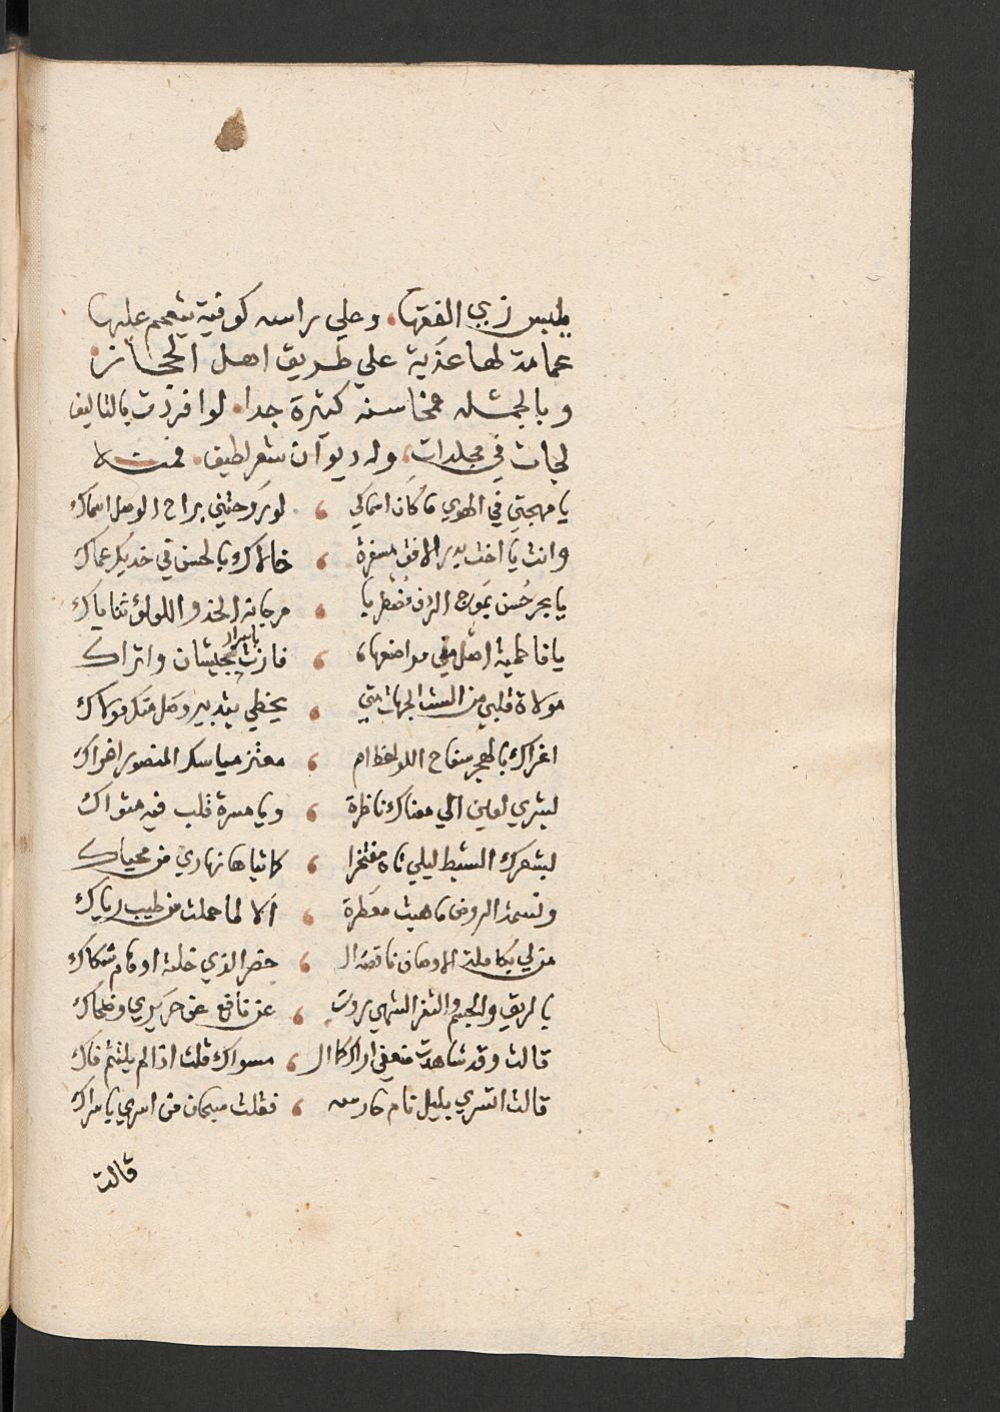 يلبس زي الفقها، وعلي راسه كوفية يتعمم عليها
عمامة لها عذبة علي طريق اهل الحجاز
وبالجمله فمحاسنه كثيرة جدا، لو افردت بالتاليف
لجات في مجلدات، وله ديوان شعر لطيف، فمنه
يا مهجتي في الهوي ما كان اسماكي ، لو روحتني براح الوصل اسماك
وانت يا اخت بدر الافق مسفرة ، خالاك بالحسن في خديك عماك
يا بحر حسن بموج الردف مضطربا ، مرجانه الخد واللولؤ ثناياك
يا فاطمية اصل في مواضعها، ، فازت بجيشان واتراك
باسراد
مولاة قلبي من الست الجهات متي ، يحظي بتدبير وصل منك مولاك
اغراك بالهجر سفاح اللواحظ ام ، معتز مياسك المنصور اغراك
لبشري لعين الي مغناك ناظرة ، ويا مسرة قلب فيه مثواك
لبشعرك السبط ليلي تاه مفتخرا ، كما تباها نهاري من محياك
ونسمة الروض ما هبت معطرة ، الا لما حملت من طيب رياك
من لي بكاملة الاوصاف ناقصة ال ، خصر الذي خلته اوقام شكاك
يا لريق والجسم والثغر الشهي روت ، عن نافع عن حريري وضحاك
قالت وقد شاهدت ضعفي اراك كال ، مسواك قلت اذا لم يلثم فاك
قالت اتسري بليل نام حارسه ، فقلت سبحان من اسري باسراك
قالت